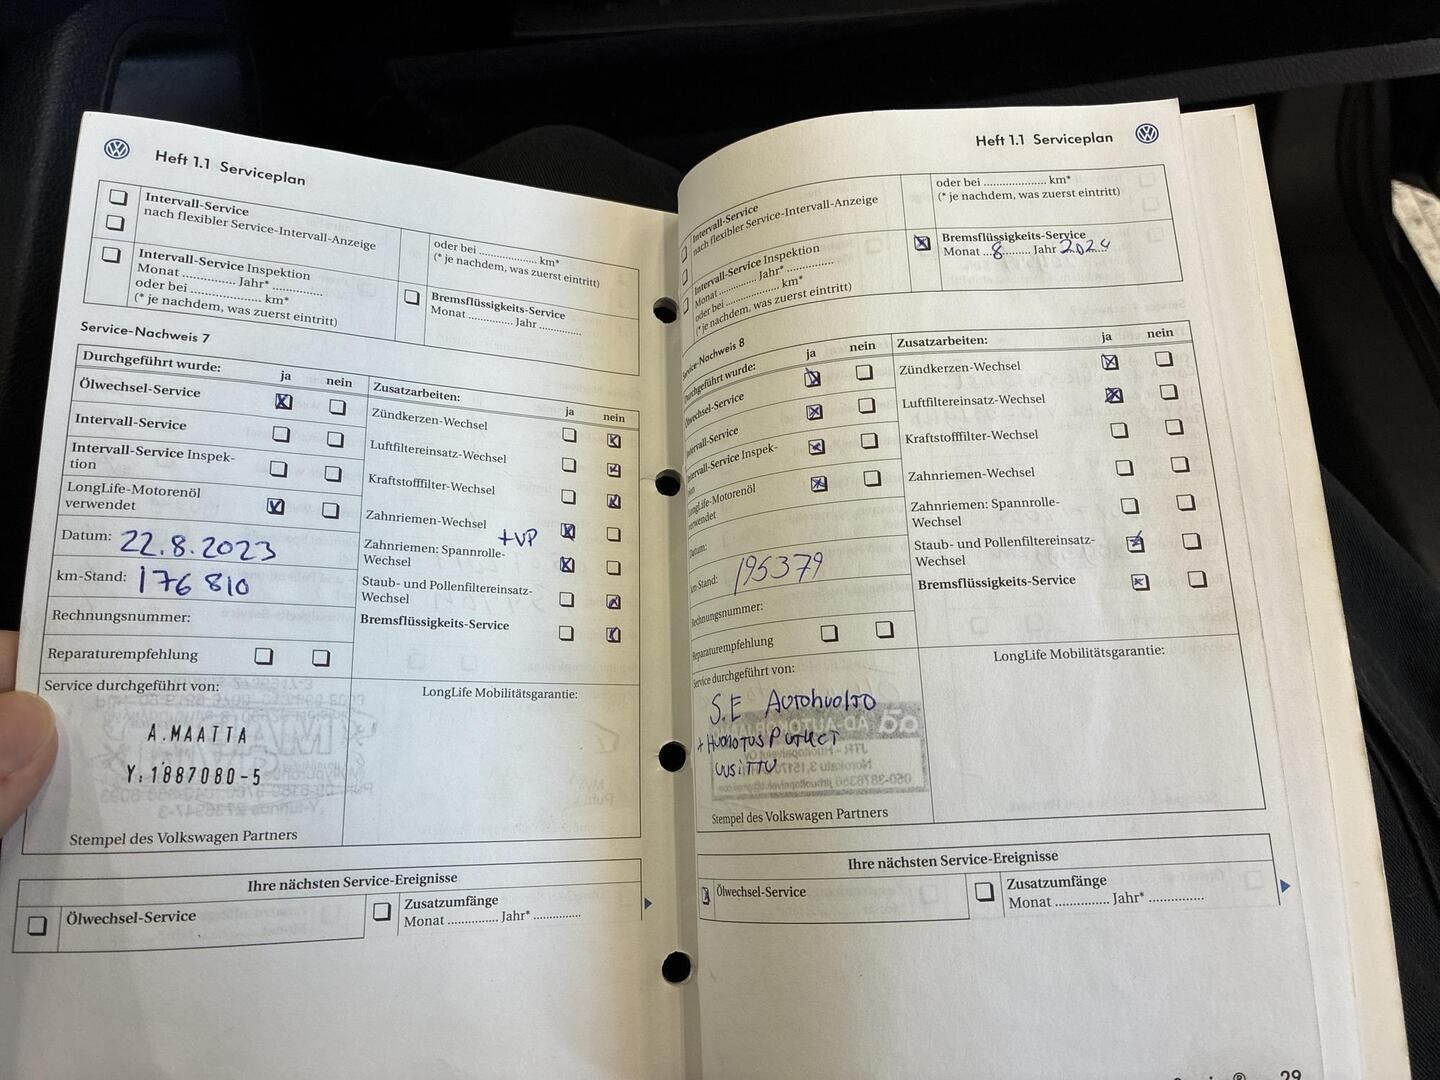 Heft 1.1 Serviceplan
Intervall-Service
nach flexibler Service-Intervall-Anzeige
Intervall-Service Inspektion
Monat .............. Jahr* .............
oder bei .................. km*
(* je nachdem, was zuerst eintritt)
oder bei ..................... km*
(* je nachdem, was zuerst eintritt)
Bremsflüssigkeits-Service
Monat ............. Jahr ............
Service-Nachweis 7
Durchgeführt wurde:
ja nein
Ölwechsel-Service
Intervall-Service
Intervall-Service Inspek-
tion
LongLife-Motorenöl
verwendet
Datum: 22.8.2023
km-Stand: 176 810
Rechnungsnummer:
Reparaturempfehlung
Zusatzarbeiten:
ja nein
Zündkerzen-Wechsel
Luftfiltereinsatz-Wechsel
Kraftstofffilter-Wechsel
Zahnriemen-Wechsel
+VP
Zahnriemen: Spannrolle-
Wechsel
Staub- und Pollenfiltereinsatz-
Wechsel
Bremsflüssigkeits-Service
Service durchgeführt von:
A.MAATTA
Y.1887080-5
Stempel des Volkswagen Partners
LongLife Mobilitätsgarantie:
Ihre nächsten Service-Ereignisse
Ölwechsel-Service
Zusatzumfänge
Monat ............. Jahr* ............
Heft 1.1 Serviceplan
Intervall-Service
nach flexibler Service-Intervall-Anzeige
Intervall-Service Inspektion
Monat .............. Jahr* .............
oder bei .................. km*
(* je nachdem, was zuerst eintritt)
oder bei ..................... km*
(* je nachdem, was zuerst eintritt)
Bremsflüssigkeits-Service
Monat ...8......... Jahr 2024
Service-Nachweis 8
Durchgeführt wurde:
ja nein
Ölwechsel-Service
Intervall-Service
Intervall-Service Inspek-
LongLife-Motorenöl
verwendet
Datum:
km-Stand: 195379
Rechnungsnummer:
Reparaturempfehlung
Zusatzarbeiten:
ja nein
Zündkerzen-Wechsel
Luftfiltereinsatz-Wechsel
Kraftstofffilter-Wechsel
Zahnriemen-Wechsel
Zahnriemen: Spannrolle-
Wechsel
Staub- und Pollenfiltereinsatz-
Wechsel
Bremsflüssigkeits-Service
Service durchgeführt von:
S.E AUTOHUOLTO
+ HUOHOTUSPUTKET
UUSITTU
Stempel des Volkswagen Partners
LongLife Mobilitätsgarantie:
Ihre nächsten Service-Ereignisse
Ölwechsel-Service
Zusatzumfänge
Monat ............. Jahr* ............
29